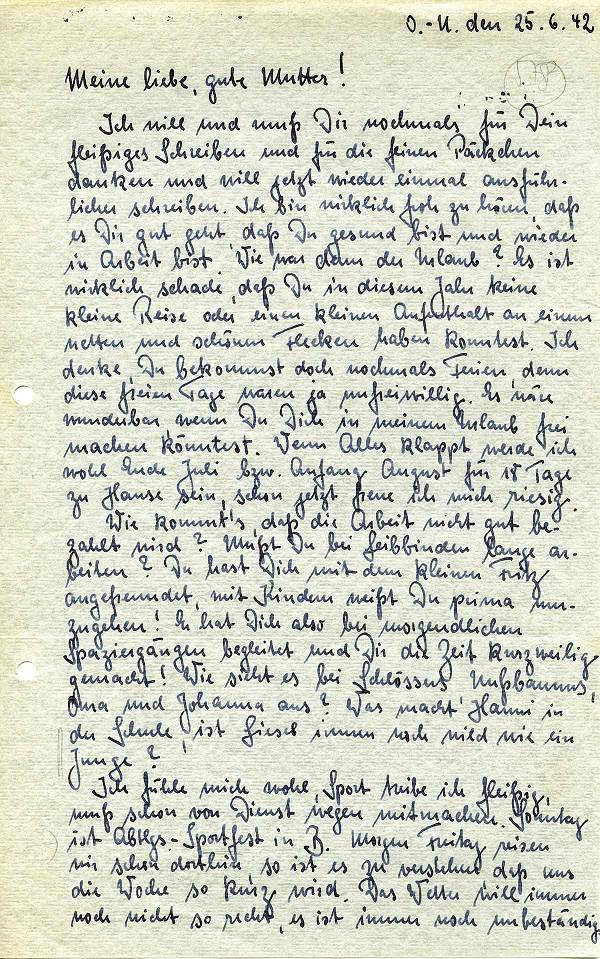 O.-U. den 25.6.42
Meine liebe, gute Mutter!
Ich will und muß Dir nochmals für Dein
fleißiges Schreiben und für die feinen Päckchen
danken und will jetzt wieder einmal ausführ-
licher schreiben. Ich bin wirklich froh zu hören, daß
es Dir gut geht, daß Du gesund bist und wieder
in Arbeit bist. Wie war denn der Urlaub? Es ist
wirklich schade, daß Du in diesem Jahr keine
kleine Reise oder einen kleinen Aufenthalt an einem
netten und schönen Flecken haben konntest. Ich
denke, Du bekommst doch nochmals Ferien, denn
diese freien Tage waren ja unfreiwillig. Es wäre
wunderbar wenn Du Dich in meinem Urlaub frei
machen könntest. Wenn Alles klappt werde ich
wohl Ende Juli bzw. Anfang August für 18 Tage
zu Hause sein, schon jetzt freue ich mich riesig.
Wie kommt's, daß die Arbeit nicht gut be-
zahlt wird? Mußt Du bei Leibbinden lange ar-
beiten? Du hast Dich mit dem kleinen Fritz
angefreundet, mit Kindern weißt Du prima um-
zugehen! Er hat Dich also bei morgendlichen
Spaziergängen begleitet und Dir die Zeit kurzweilig
gemacht! Wie sieht es bei Schlössers Nußbaums,
Oma und Johanna aus? Was macht Hanni in
der Schule, ist Liesel immer noch wild wie ein
Junge?
Ich fühle mich wohl, Sport treibe ich fleißig,
muß schon von Dienst wegen mitmachen. Sonntag
ist Abtlgs-Sportfest in B. Morgen Freitag reisen
wir schon dorthin, so ist es zu verstehen daß uns
die Woche so kurz wird. Das Wetter will immer
noch nicht so recht, es ist immer noch unbeständig,